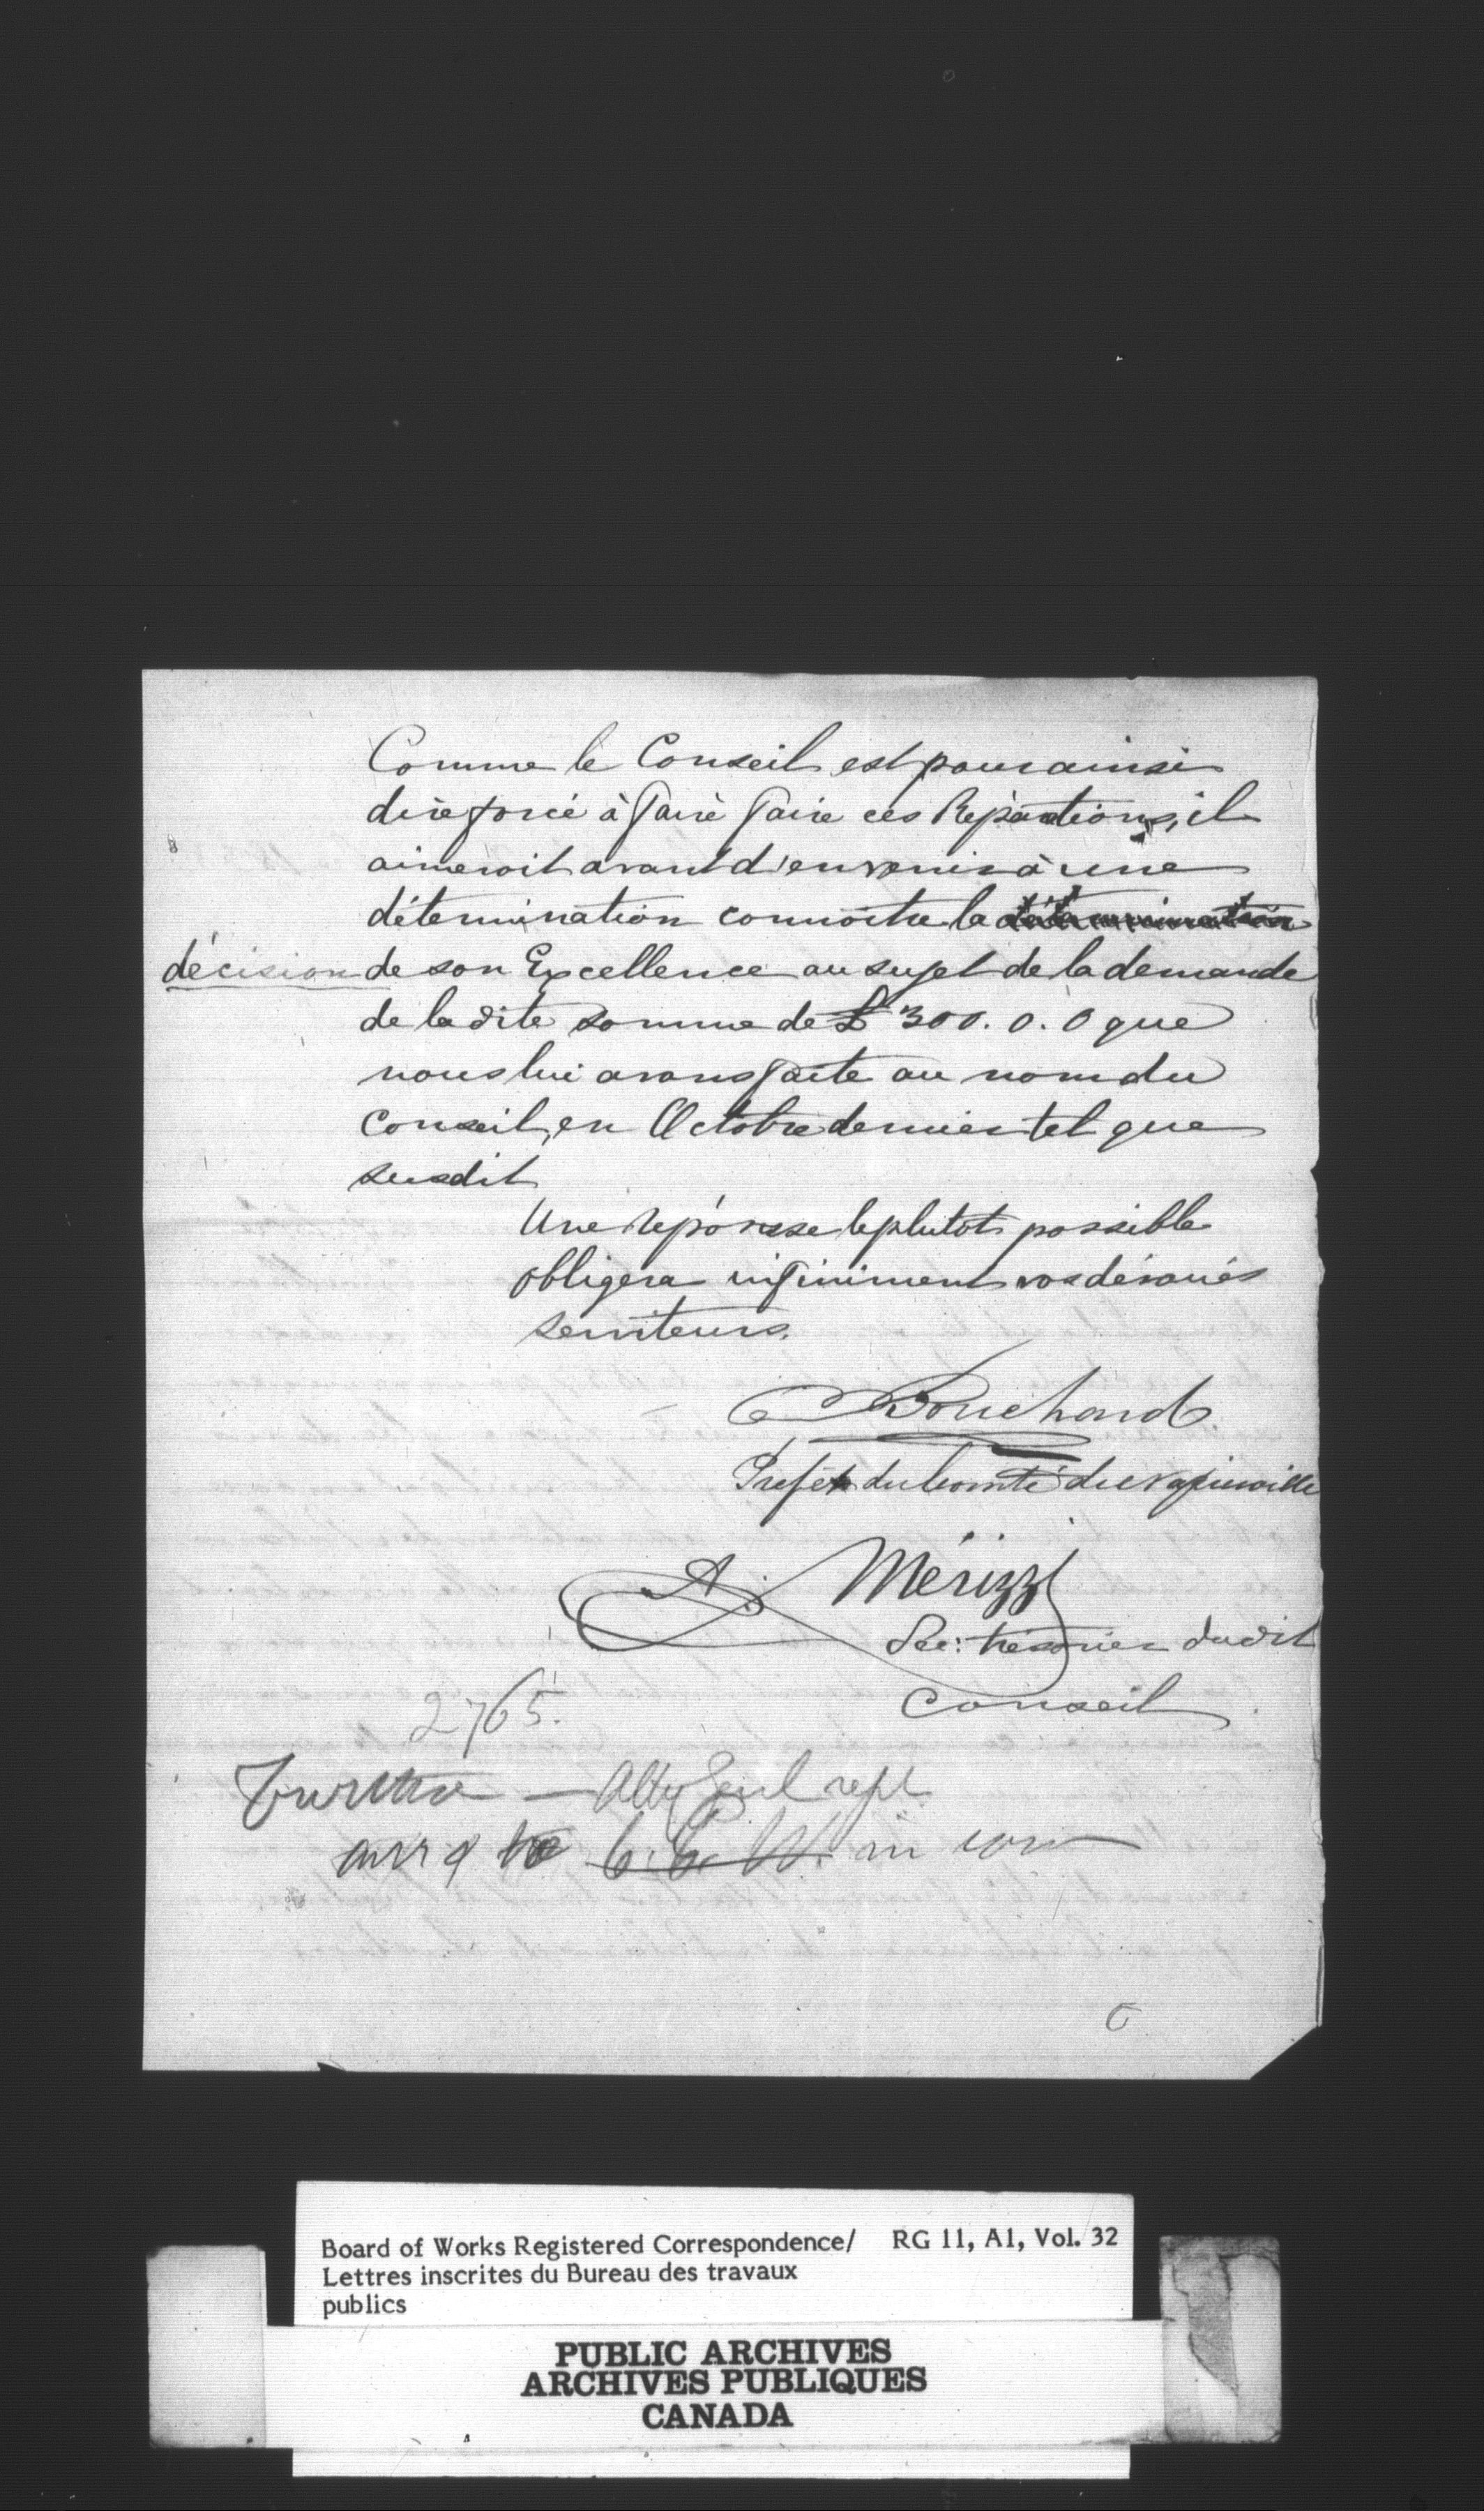 Comme le Conseil est pour ainsi
dire forcé à faire faire ces Réparations, il
aimeroit avant d'en venir à une
détermination connoître la détermination
décision de son Excellence au sujet de la demande
de la dite somme de £ 300. 0. 0 que
nous lui avons faite au nom du
Conseil, en Octobre dernier tel que
susdit
Une réponse le plutot possible
obligera infiniment vos dévoués
serviteurs.
Bouchard
Préfet du Comté de Napierville
A. Mérizzi
Sec: trésorier dudit
Conseil
2765.
Atty Genl rept
to C. C. W. in
Board of Works Registered Correspondence/ RG 11, A1, Vol. 32
Lettres inscrites du Bureau des travaux
publics
PUBLIC ARCHIVES
ARCHIVES PUBLIQUES
CANADA